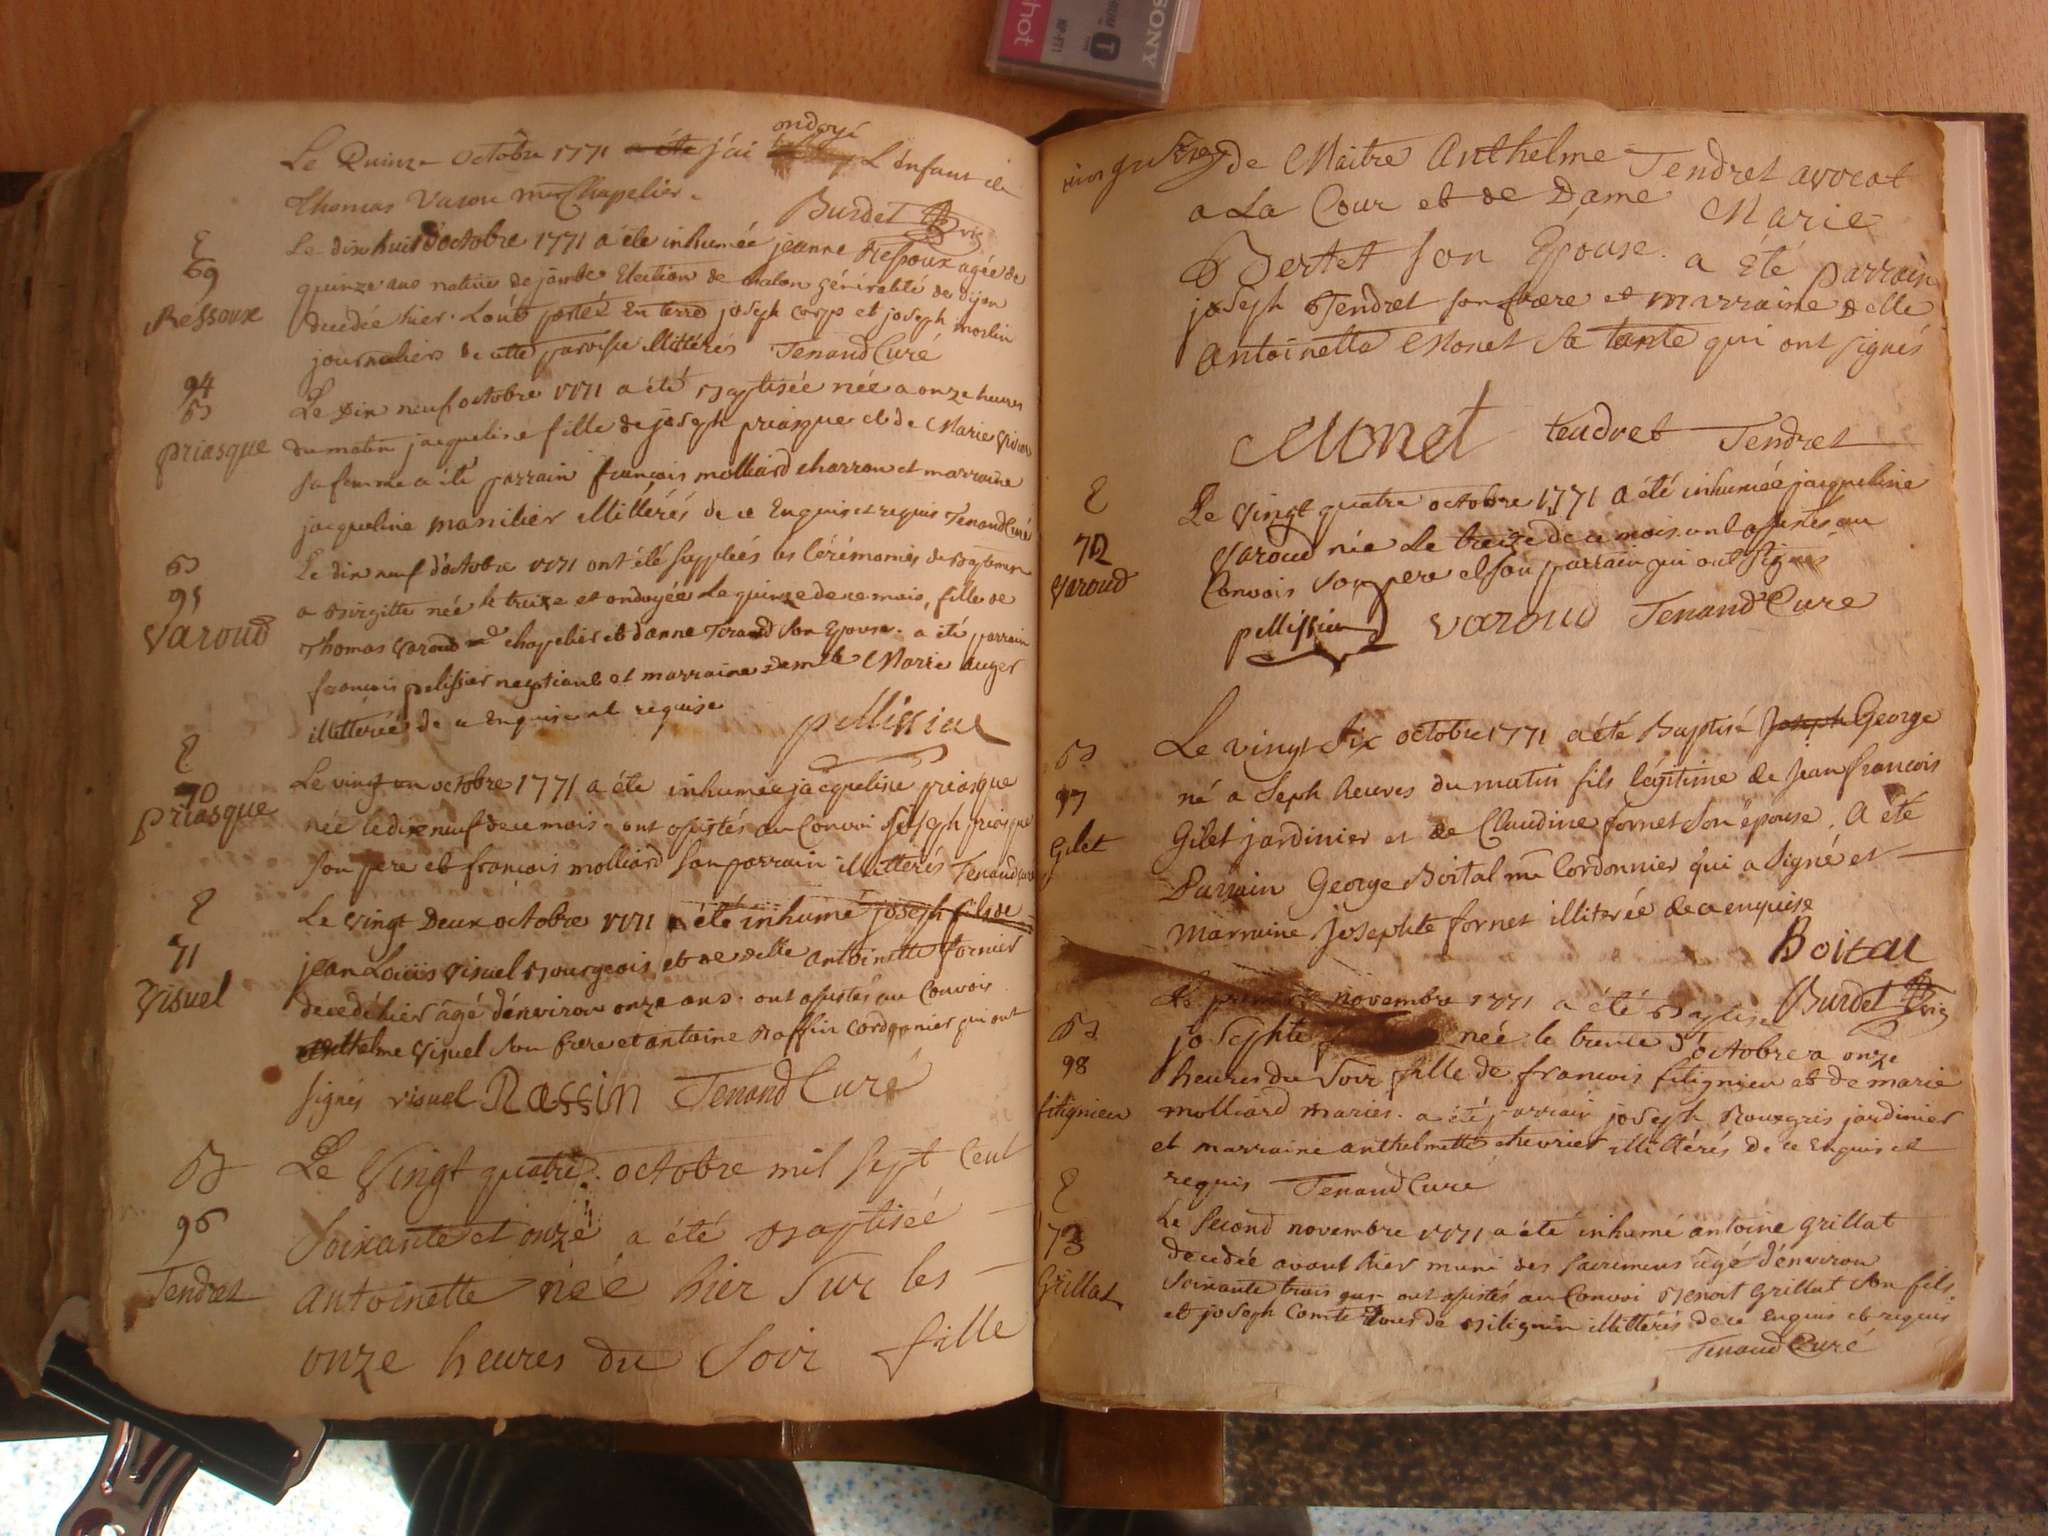 SONY
Le Quinze Octobre 1771 a été j'ai ondoyé L'enfant de
Thomas Varou md Chapelier.
Burdet vic
E
69
Ressoux
Le dix huit d'octobre 1771 a éte inhumée jeanne Ressoux agée de
quinze ans native de Election de chalon généralité de dijon
decedée hier. L'ont portéz En terre joseph Corps et joseph morlin
journaliers de cette paroisse illittérés Tenand Curé
94
B
priasque
Le Dix neuf octobre 1771 a été Baptisée née a onze heures
du matin jacqueline fille de joseph priasque et de Marie
sa femme a été parrain françois molliard charron et marraine
jacqueline manilier illittérés de ce Enquis et requis Tenand Curé
B
95
Varoud
Le dix neuf d'octobre 1771 ont été suppléés les Cérémonies du Baptesme
a Birgitte née le treize et ondoyée Le quinze de ce mois, fille de
Thomas Varoud md chapelier et d'anne Terand son Epouse. a été parrain
françois pelissier negotiant et marraine demlle Marie auger
illittérée de ce Enquise et requise
pellissier
E
70
Priasque
Le vingt un octobre 1771 a éte inhumée jacqueline priasque
née le dix neuf de ce mois. ont assistés au Convoi Joseph priasque
son pere et françois molliard son parrain illittérés Tenand curé
E
71
Visuel
Le Vingt Deux octobre 1771 a été inhumé joseph fils de
jean Louis Visuel Bourgeois et de delle antoinette fornier
decedé hier âgé d'environ onze ans. ont assistés au Convois
anthelme Visuel son frere et antoine Raffin Cordonier qui ont
signés visuel Rassin Tenand Curé
B
96
Tendret
Le Vingt quatre octobre mil sept Cent
Soixante et onze a été Baptisée
antoinette née hier Sur les
onze heures du Soir fille
de Maitre Anthelme Tendret avocat
a La Cour et de Dame Marie
Bertet son Epouse. a été parrain
joseph Tendret son frere et marraine Delle
Antoinette Monet sa tante qui ont signés
Monet tendret Tendret
E
72
Varoud
Le Vingt quatre octobre 1771 a été inhumée jacqueline
Varoud née Le treize de ce mois. ont assistés au
Convois son pere et son parrain qui ont signés
pellissier varoud Tenand Cure
B
97
Gilet
Le vingt six octobre 1771 a été Baptisé Joseph George
né a Seph heures du matin fils légitime de Jean françois
Gilet jardinier et de Claudine fornet son épouse. A été
Parrain George Boital me Cordonnier qui a signé et
marraine Josephte fornet illiterée de ce enquise
Boital
Burdet vic
B
98
fitignieu
Le premier novembre 1771 a été Baptisé
josephte née le trente 1 octobre a onze
heures du soir fille de francois fitignieu et de marie
molliard mariés. a été parrain joseph Rousgris jardinier
et marraine anthelmette chevrier illittérés de ce Enquis et
requis Tenand Curé
E
73
Grillat
Le second novembre 1771 a été inhumé antoine Grillat
decedée avant hier muni des sacremens âgé d'environ
soixante trois ans ont assistés au Convoi Benoit Grillat son fils
et joseph Comte tous de Bilignin illittérés de ce Enquis et requis
Tenand Curé